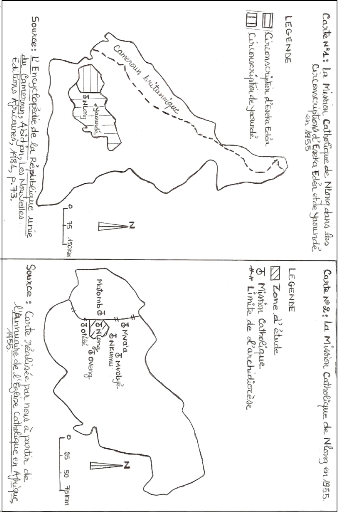 Carte N°1: la Mission Catholique de Nlong dans les
Circonscriptions d'Eséka Edéa et de Yaoundé
en 1955
LEGENDE
Circonscription d'Eséka Edéa
Circonscription de Yaoundé
Cameroun britannique
Yaoundé
Nlong
N
0 75 150km
Source: L'Encyclopédie de la République unie
du Cameroun, Abidjan, Les Nouvelles
Editions Africaines, 1981, p.73.
Carte N°2: la Mission Catholique de Nlong en 1955
LEGENDE
Zone d'étude
Mission Catholique
Limite de l'archidiocèse
Mva'a
Mvolyé
Nlong
Matomb
Otélé
N
0 25 50 75km
Source: Carte réalisée par nous à partir de
l'Annuaire de l'Eglise Catholique en Afrique,
1955